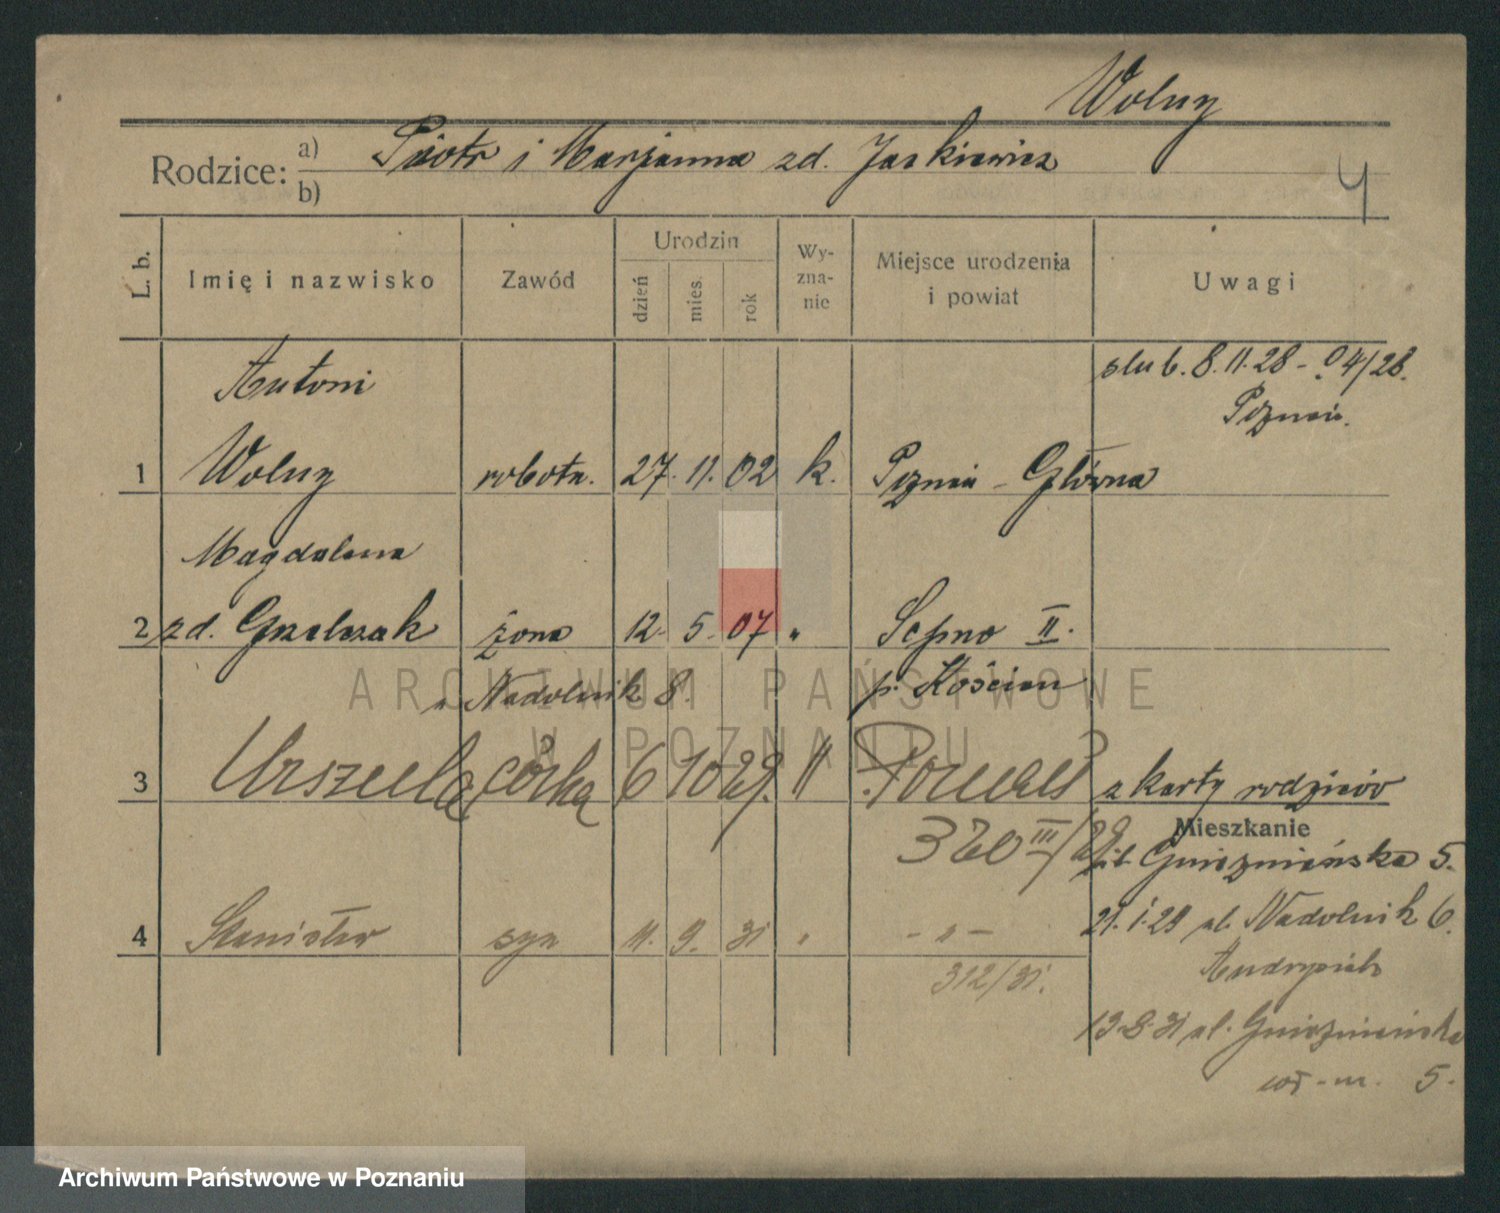 Wolny
Rodzice: a) Piotr i Marjanna zd. Jaskiewicz
b)
4
L. b. Imię i nazwisko Zawód Urodzin dzień mies. rok Wyznanie Miejsce urodzenia i powiat Uwagi
Antoni ślub. 8.11.28 - 04/28.
Poznań.
1 Wolny robotn. 27. 11. 02 k. Poznań - Główna
Magdalena
2 zd. Grzelczak żona 12. 5. 07 " Sepno II.
Nadolnik 8. p. Kościan
3 Urszula córka 6 10 29. " Poznań z karty rodziców
320 III/29 Mieszkanie
ul. Gnieźnieńska 5.
21.1.29 ul. Nadolnik 6.
4 Stanisław syn 11. 9. 31 " - " -
312/31.
13.8.31 ul. Gnieźnieńska
5.
ARCHIWUM PAŃSTWOWE
W POZNANIU
Archiwum Państwowe w Poznaniu